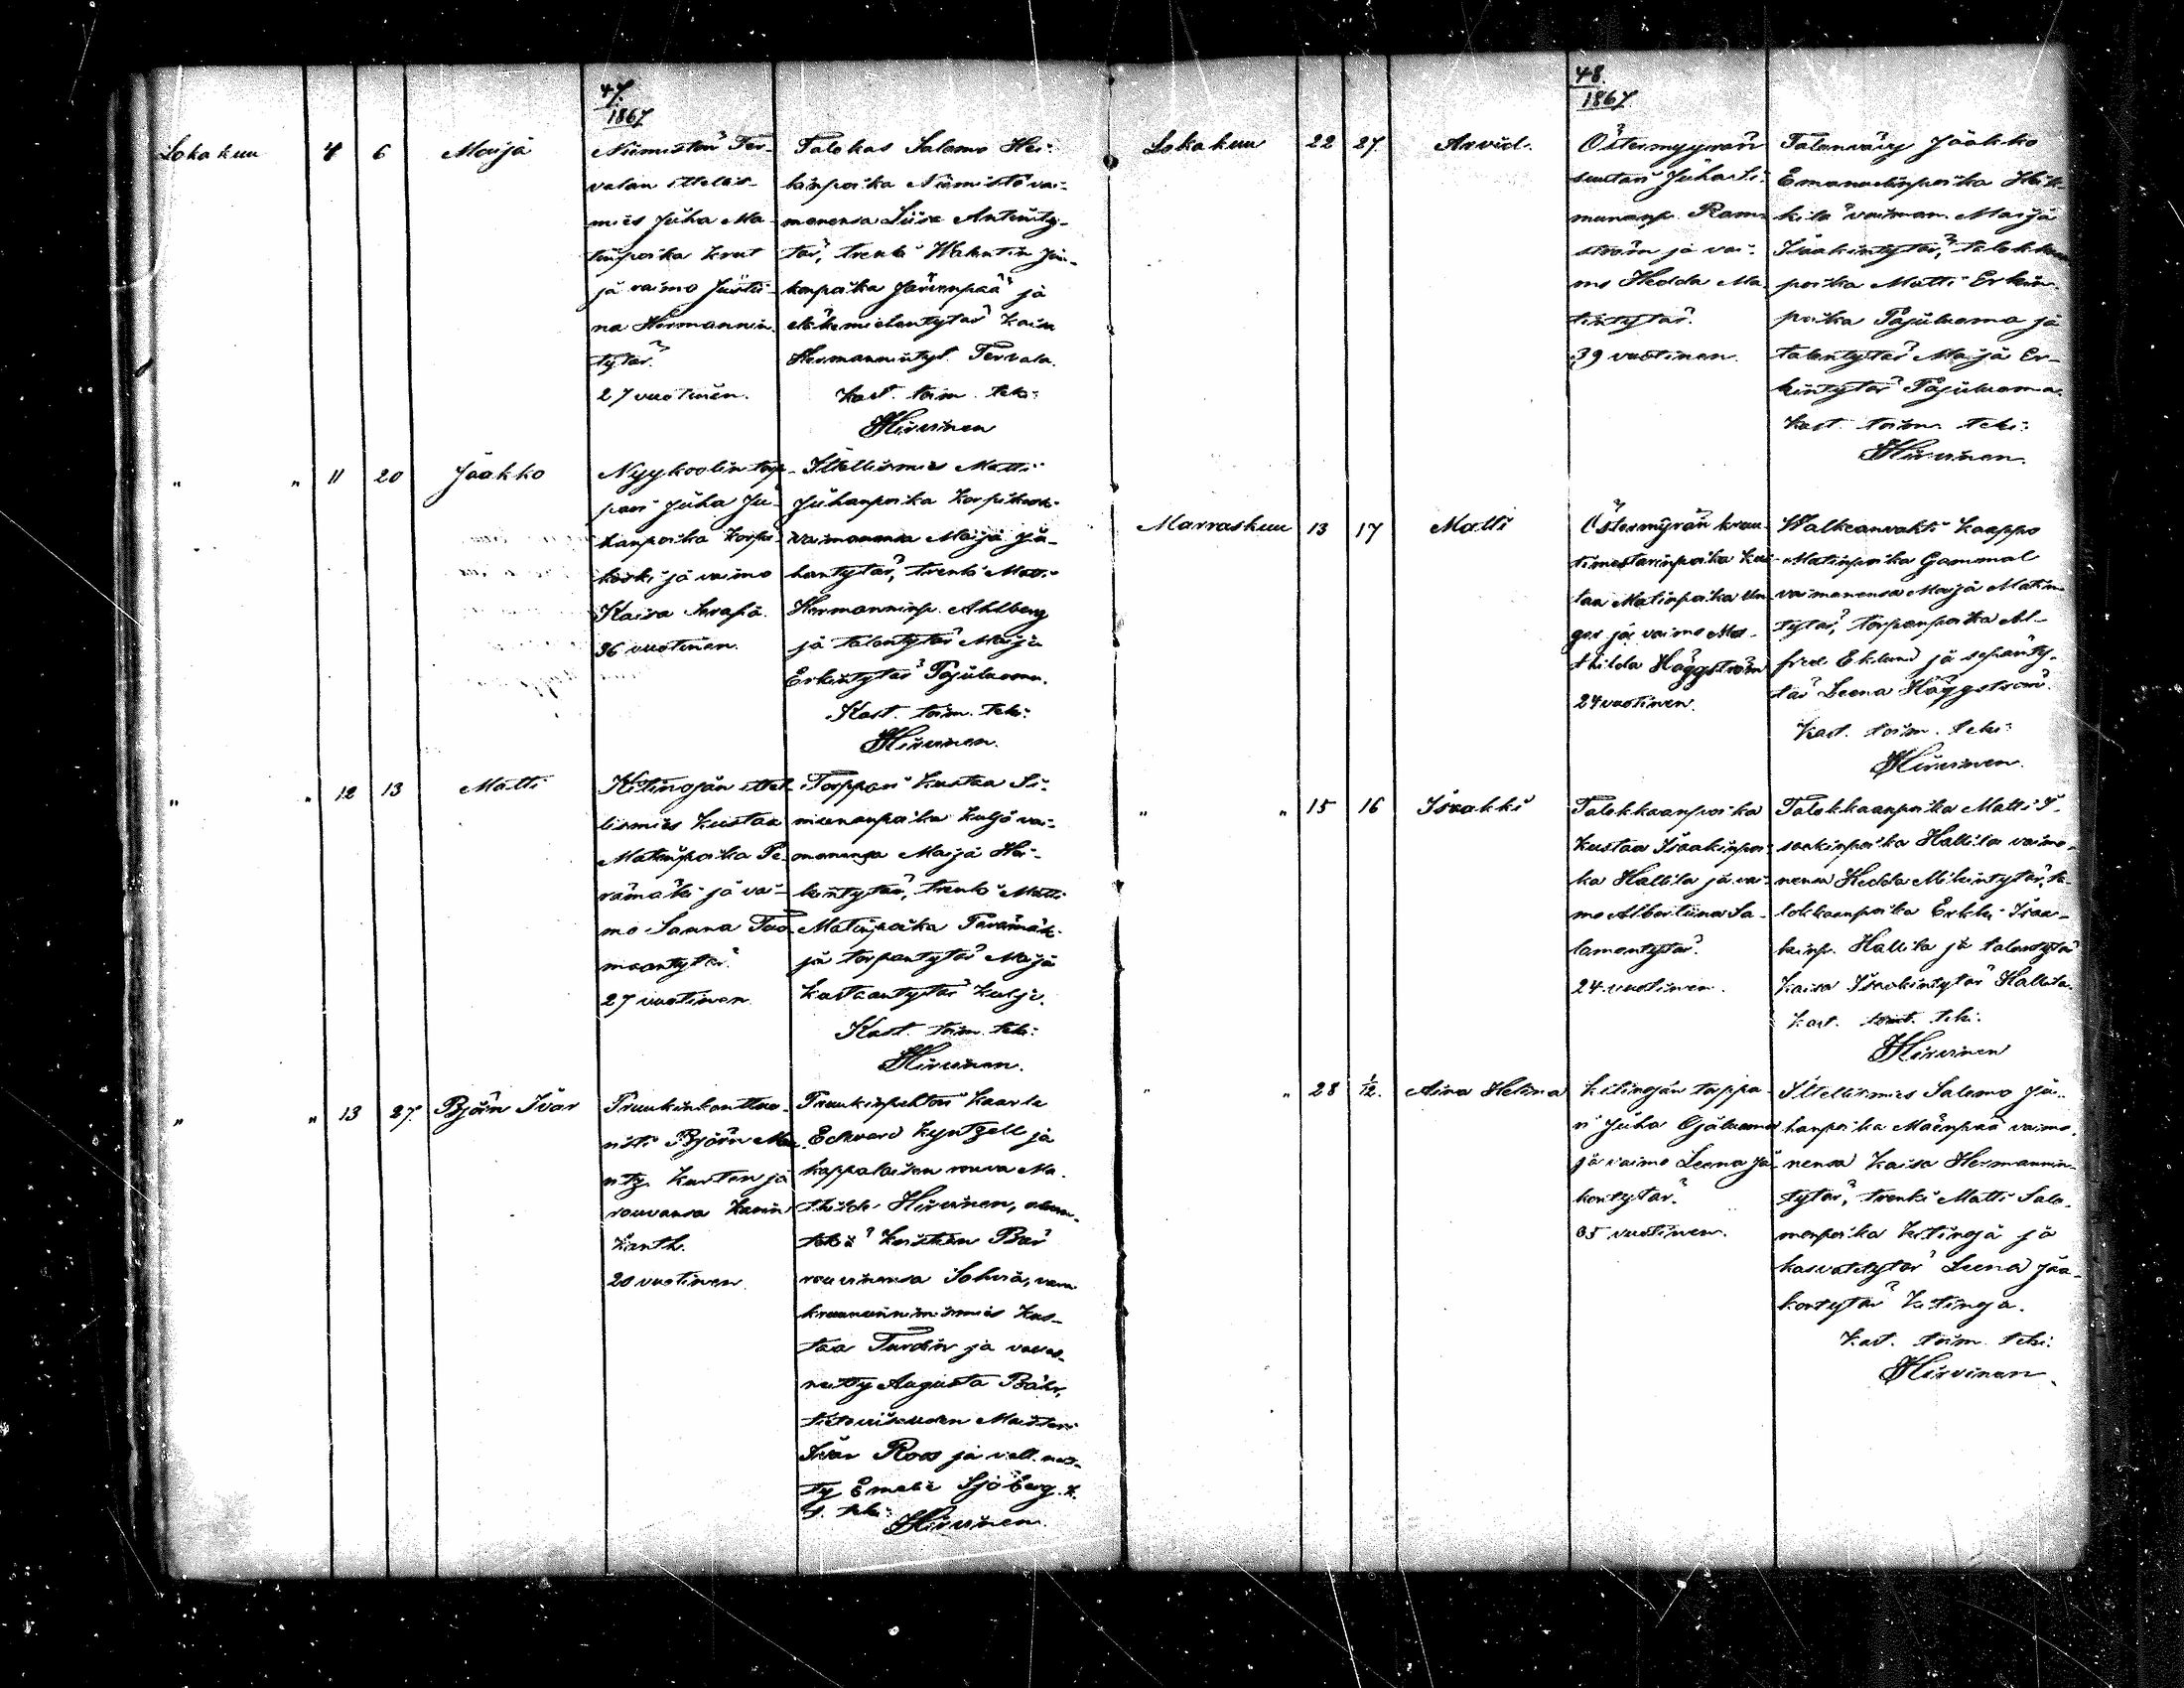 47.
1867
Lokakuu 4 6 Maija
Niemistön Ter-
valan ittellis-
mies Juha Ma-
tinpoika Krut
ja vaimo Justii-
na Hermannin-
tytär.
27 vuotinen.
Talokas Salomo Hei-
kinpoika Niemistö vai-
monensa Liisa Antinty-
tär, trenki Walentin Jaa-
konpoika Järvenpää ja
Kaisa
Hermannintyt. Tervala.
Kast. toim. teki:
Hirvinen
" " 11 20 Jaakko
Nyykoolin torp-
pari Juha Ju-
hanpoika Korpi-
koski ja vaimo
Kaisa Serafia.
36 vuotinen.
Ittellismies Matti
Juhanpoika Korpikoski
vaimonensa Maija Ju-
hantytär, trenki Matti
Hermanninp. Ahlberg
ja talontytär Maija
Erkintytär Pajuluoma.
Kast. toim. teki:
Hirvinen.
" " 12 13 Matti
Kitinojan ittel-
lismies Kustaa
Matinpoika Pe-
rämäki ja vai-
mo Sanna Tuo-
maantytär.
27 vuotinen.
Torppari Kustaa Si-
monanpoika Kulju vai-
monensa Maija Hei-
kintytär, trenki Matti
Matinpoika Perämäki
ja torpantytär Maija
Kustaantytär Kulju.
Kast. toim. teki:
Hirvinen.
" " 13 27. Björn Ivar
Pruukinkontto-
risti Björn Mau-
ritz Kurten ja
rouvansa Karin
Kanth.
20 vuotinen.
Pruukinpehtori Kaarle
Edward Kyntzell ja
kappalaisen rouva Ma-
thilda Hirvinen,
rouvinensa Sohvia, vara
kruununnimismies Kus-
taa Turdin ja
neitty Augusta Bähr,
Maisteri
Ivar Roos ja
ty Emelie Sjöberg. K.
t. teki:
Hirvinen.
48.
1867
Lokakuu 22 27. Arvid.
Östermyyrän
suutari Juha Si-
monanp. Ram-
ström ja vai-
mo Hedda Ma-
tintytär.
39 vuotinen.
Talonvävy Jaakko
Emanuelinpoika Heik-
kilä vaimon. Maija
Isaakintytär, talokkaan
poika Matti Erkin-
poika Pajuluoma ja
talontytär Maija Er-
kintytär Pajuluoma.
Kast. toim. teki:
Hirvinen.
Marraskuu 13 17 Matti
Östermyrän kruu-
Kus-
taa Matinpoika Un-
ger ja vaimo Ma-
thilda Häggström
24 vuotinen.
Walkeanvahti Kaappo
Matinpoika Gammal
vaimonensa Maija Matin-
tytär, torpanpoika Al-
fred Eklund ja sepänty-
tär Leena Häggström.
Kast. toim. teki:
Hirvinen.
" " 15 16 Isaakki
Talokkaanpoika
Kustaa Isaakinpoi-
ka Hallila ja vai-
mo Albertiina Sa-
lomontytär.
24 vuotinen.
Talokkaanpoika Matti I-
saakinpoika Hallila vaimo-
nensa Hedda Mikintytär, ta-
lokkaanpoika Erkki Isaa-
kinp. Hallila ja talontytär
Kaisa Isaakintytär Hallila.
Kast. toim. teki:
Hirvinen
" " 28 1/12. Aina Helena
Kitinojan torppa-
ri Juha Ojaluoma
ja vaimo Leena Jaa-
kontytär.
35 vuotinen.
Ittellismies Salomo Ju-
hanpoika Mäenpää vaimo-
nensa Kaisa Hermannin-
tytär, trenki Matti Salo-
monpoika Kitinoja ja
kasvattitytär Leena Jaa-
kontytär Kitinoja.
Kast. toim. teki:
Hirvinen